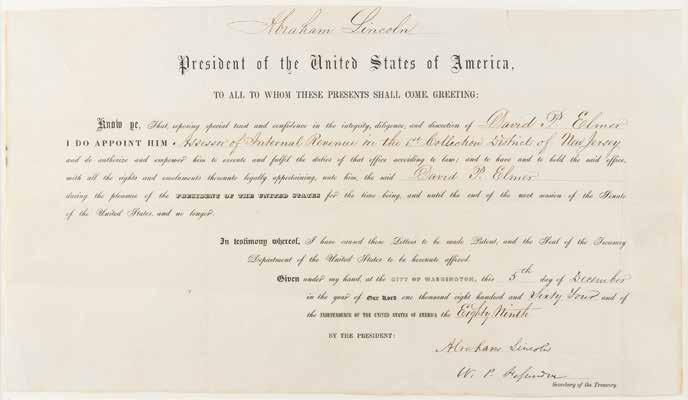 Abraham Lincoln
President of the United States of America,
TO ALL TO WHOM THESE PRESENTS SHALL COME, GREETING:
Know ye, That, reposing special trust and confidence in the integrity, diligence, and discretion of David P. Elmer
I DO APPOINT HIM Assessor of Internal Revenue in the 1st Collection District of New Jersey
and do authorize and empower him to execute and fulfil the duties of that office according to law; and to have and to hold the said office,
with all the rights and emoluments thereunto legally appertaining, unto him, the said David P. Elmer
during the pleasure of the PRESIDENT OF THE UNITED STATES for the time being, and until the end of the next session of the Senate
of the United States, and no longer.
In testimony whereof, I have caused these Letters to be made Patent, and the Seal of the Treasury
Department of the United States to be hereunto affixed.
Given under my hand, at the CITY OF WASHINGTON, this 5th day of December
in the year of Our Lord one thousand eight hundred and Sixty Four and of
the INDEPENDENCE OF THE UNITED STATES OF AMERICA the Eighty Ninth
BY THE PRESIDENT:
Abraham Lincoln
W. P. Fessenden
Secretary of the Treasury.